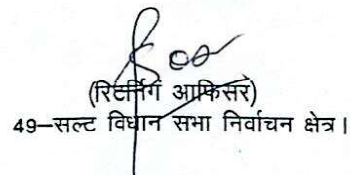 (रिटर्निंग आफिसर)
49–सल्ट विधान सभा निर्वाचन क्षेत्र।